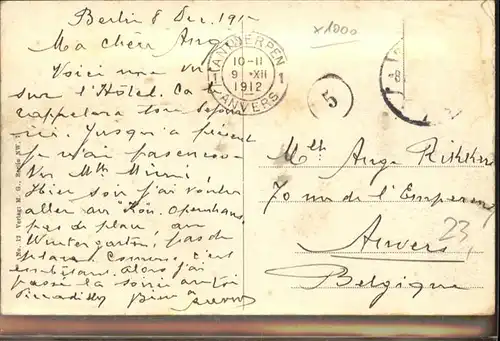 Berlin 8 Dec. 191
Ma chère
Voici une
sur l'Hôtel. Ca te
rappelera ton sejour
ici. Jusqu'a présent
je n'ai pas encore
vu Mlle Mimi,
Hier soir j'ai voulu
aller au "Kön. Opernhaus,
pas de place, au
Wintergarten, pas de
place. Comme c'est
embêtant. Alors j'ai
passé la soirée au
Piccadilly. Bien à
No. 12 Verlag M. O., Berlin NW. 7
ANTWERPEN
1 10-11 1
9 XII
1912
ANVERS
x1000
5
8
Mlle Ange
70 rue de l'Empereur
Anvers
Belgique
23,